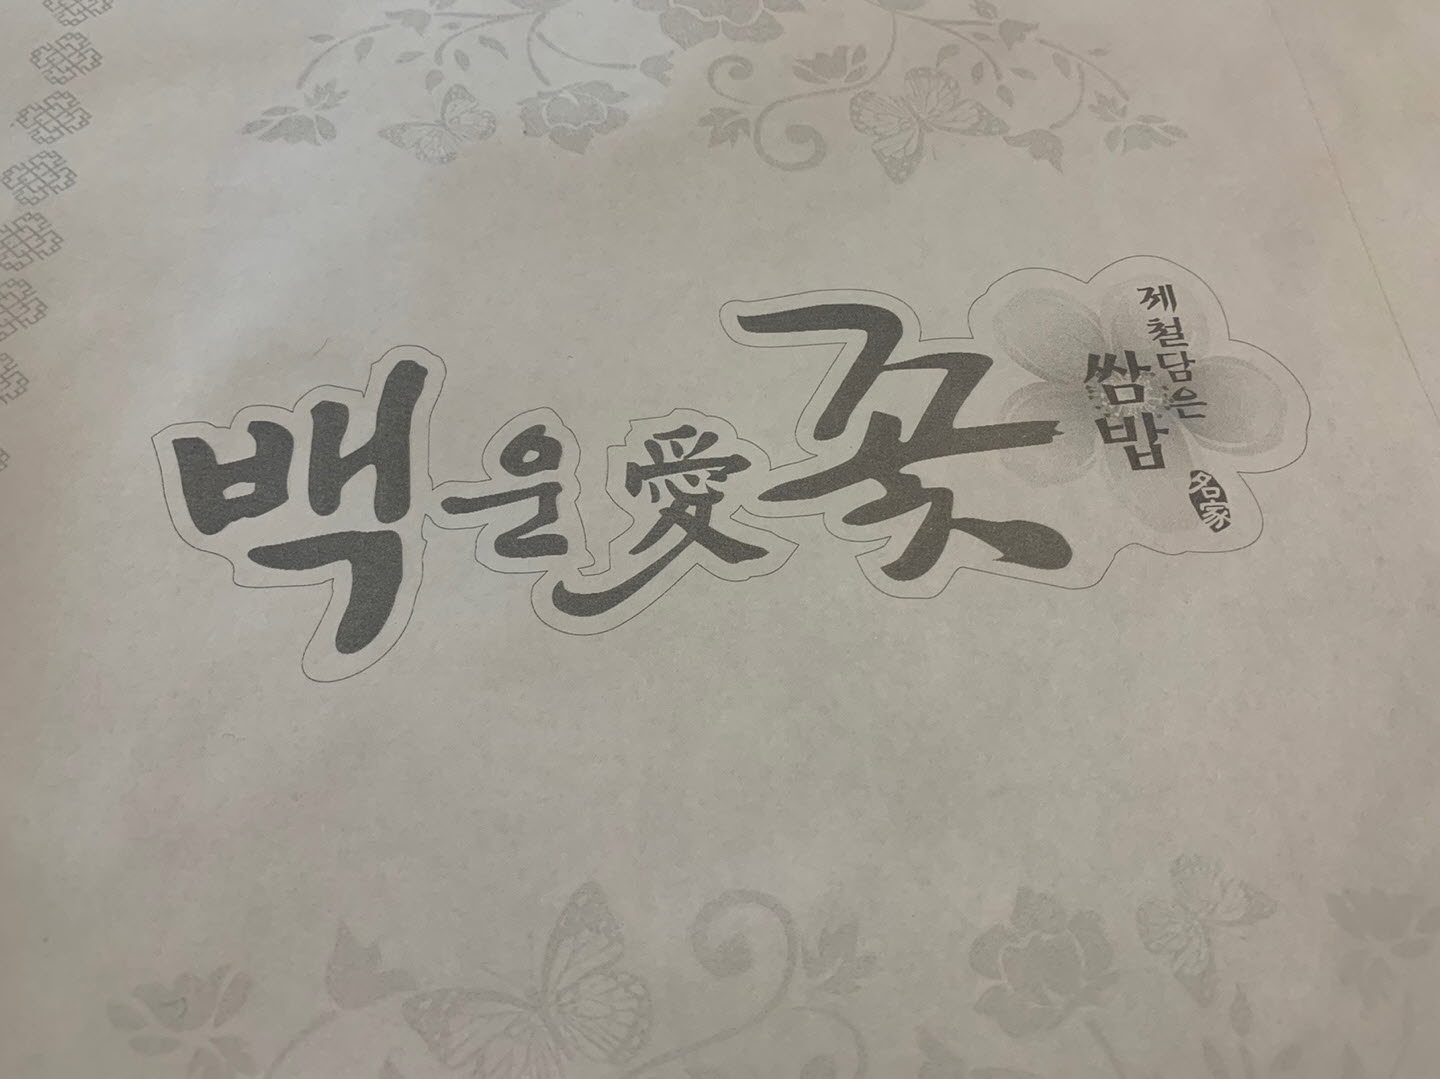 백운愛꽃
제철담은
쌈밥
名家